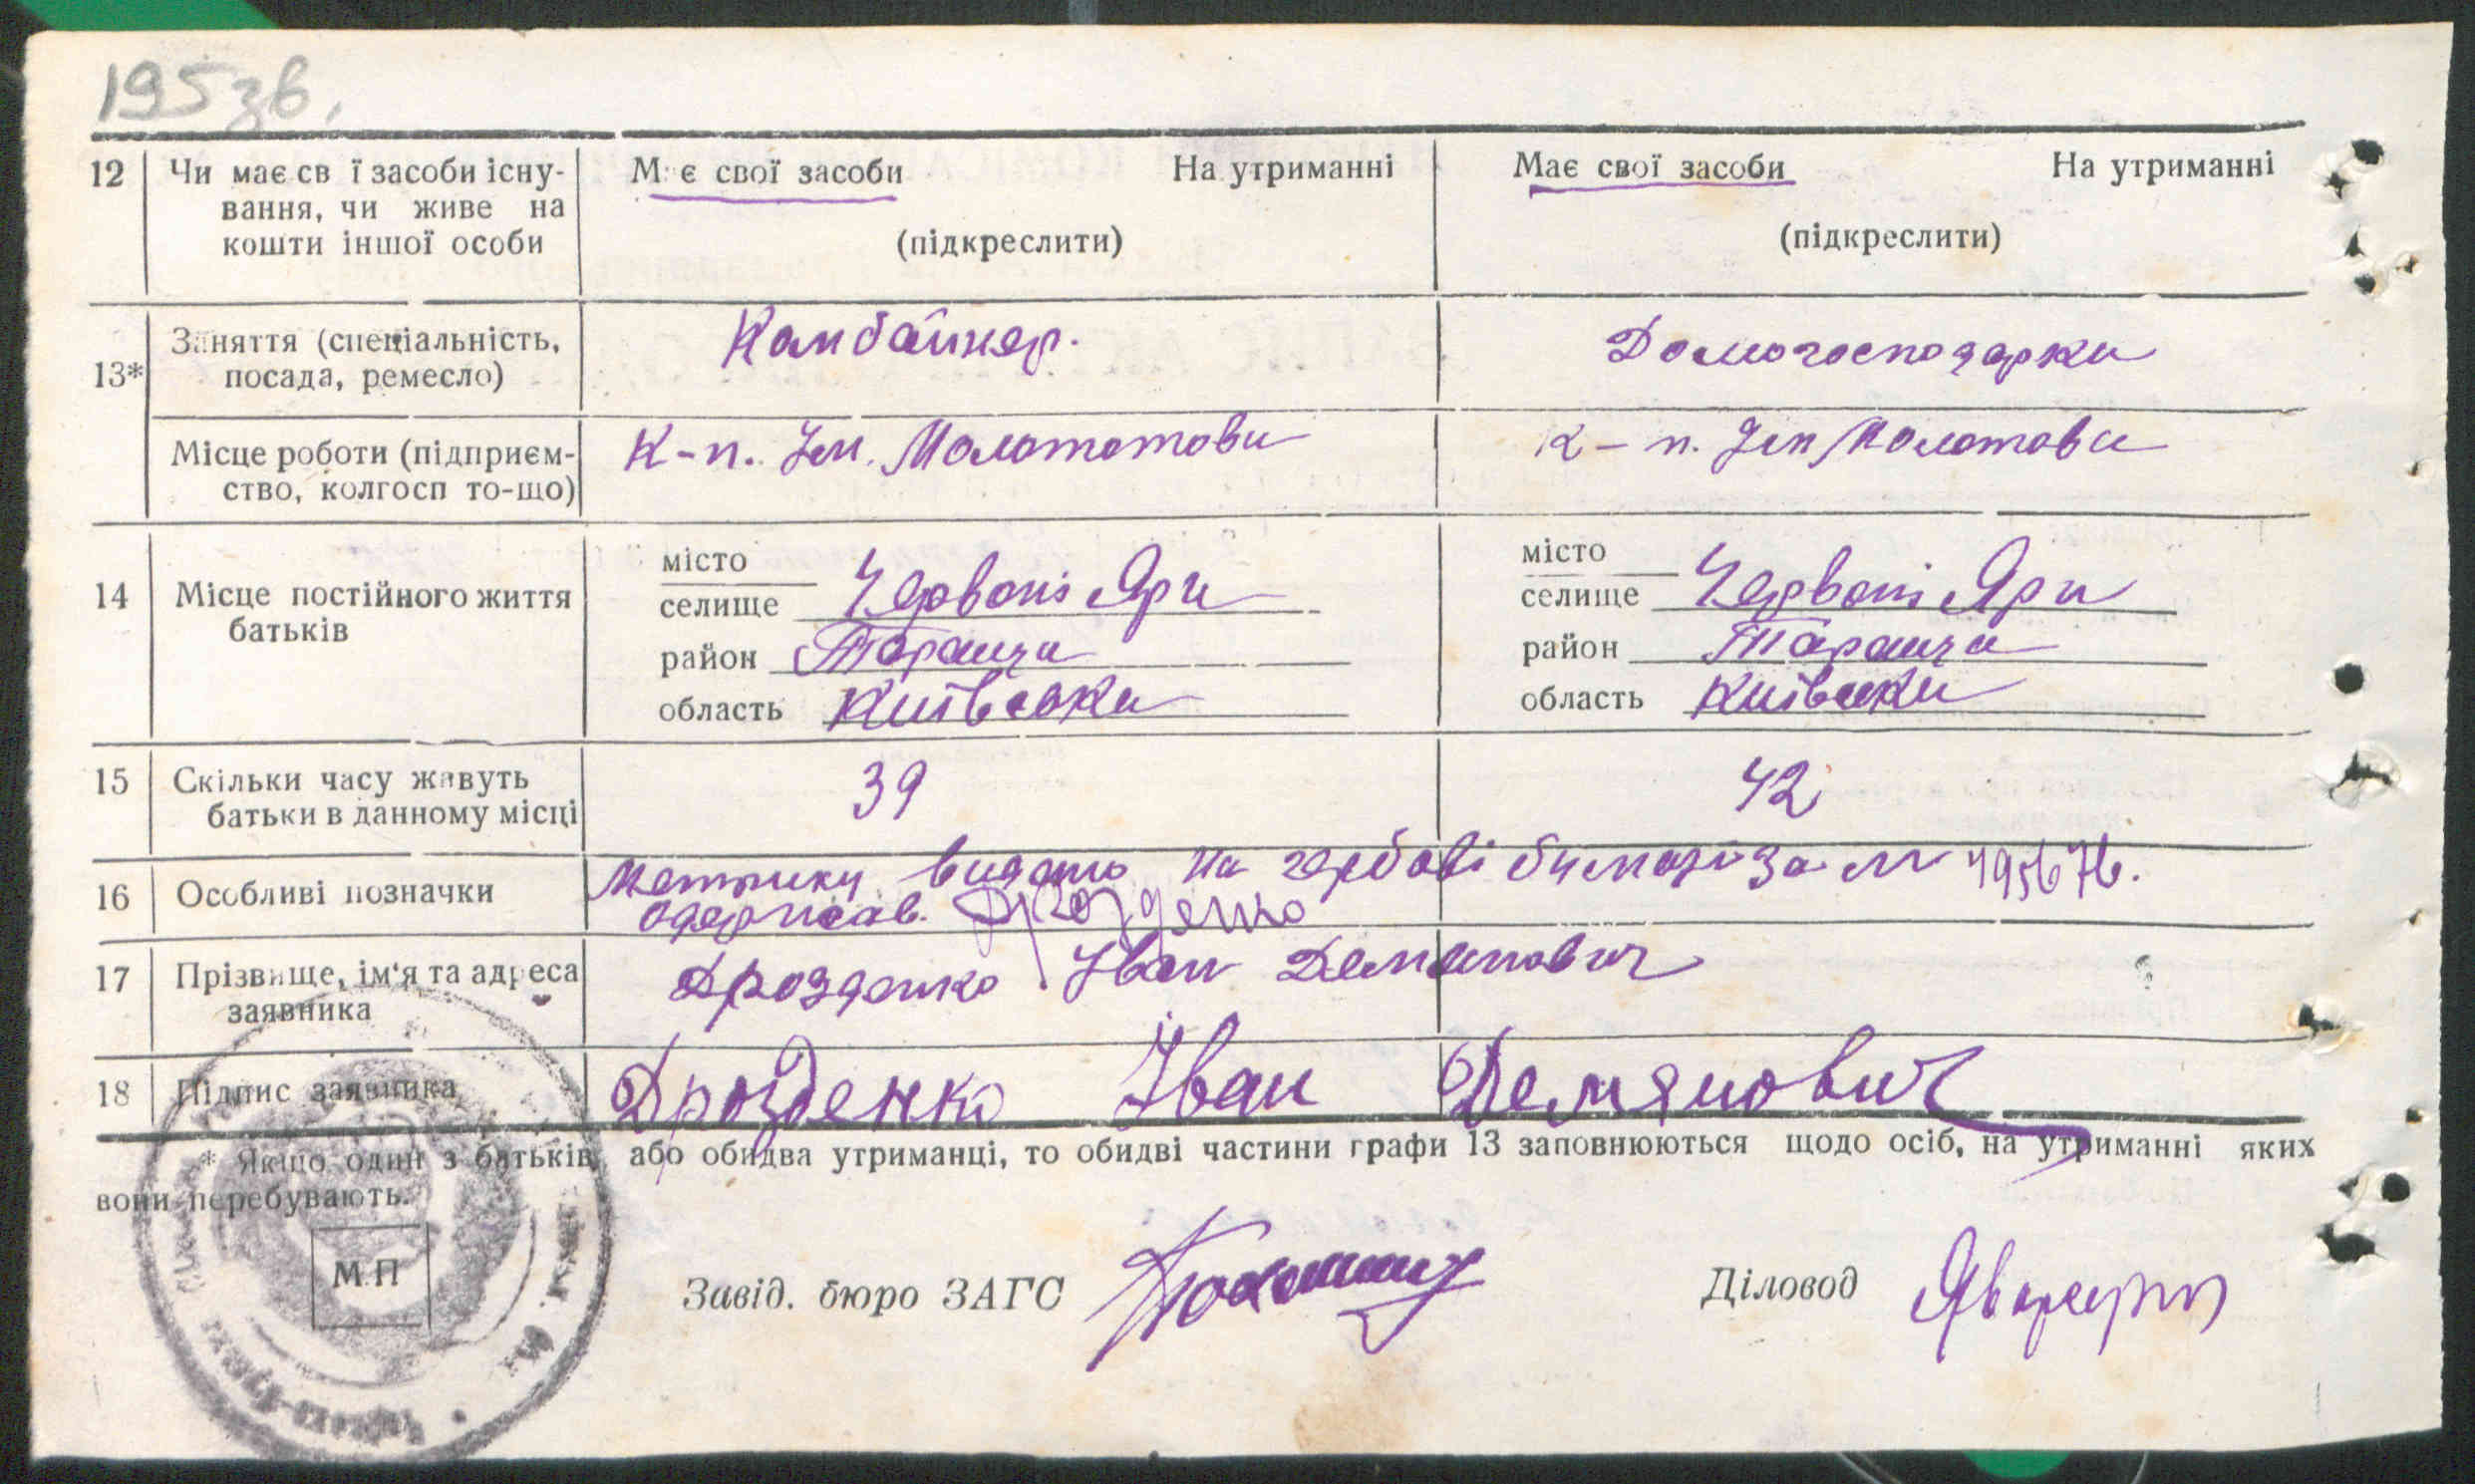 195 зв.
12 Чи має св ї засоби існу- М є свої засоби На утриманні Має свої засоби На утриманні
вання, чи живе на
кошти іншої особи (підкреслити) (підкреслити)
13* Заняття (спеціальність, Комбайнер. Домогосподарка
посада, ремесло)
Місце роботи (підприєм- К-п. Ім. Молототова к-п. Ім Молотова
ство, колгосп то-що)
14 Місце постійного життя
батьків
місто місто
селище Червоні Яри селище Червоні Яри
район Тараща район Тараща
область Київська область Київська
15 Скільки часу живуть 39 42
батьки в данному місці
16 Особливі позначки Метрику видано на гербові бумазі за №
одержав. Дрозденко
17 Прізвище, ім'я та адреса Дрозденко Іван Демянович
заявника
18 Підпис заявника Дрозденко Іван Демянович
* Якщо один з батьків, або обидва утриманці, то обидві частини графи 13 заповнюються щодо осіб, на утриманні яких
вони перебувають.
М.П
Завід. бюро ЗАГС Діловод